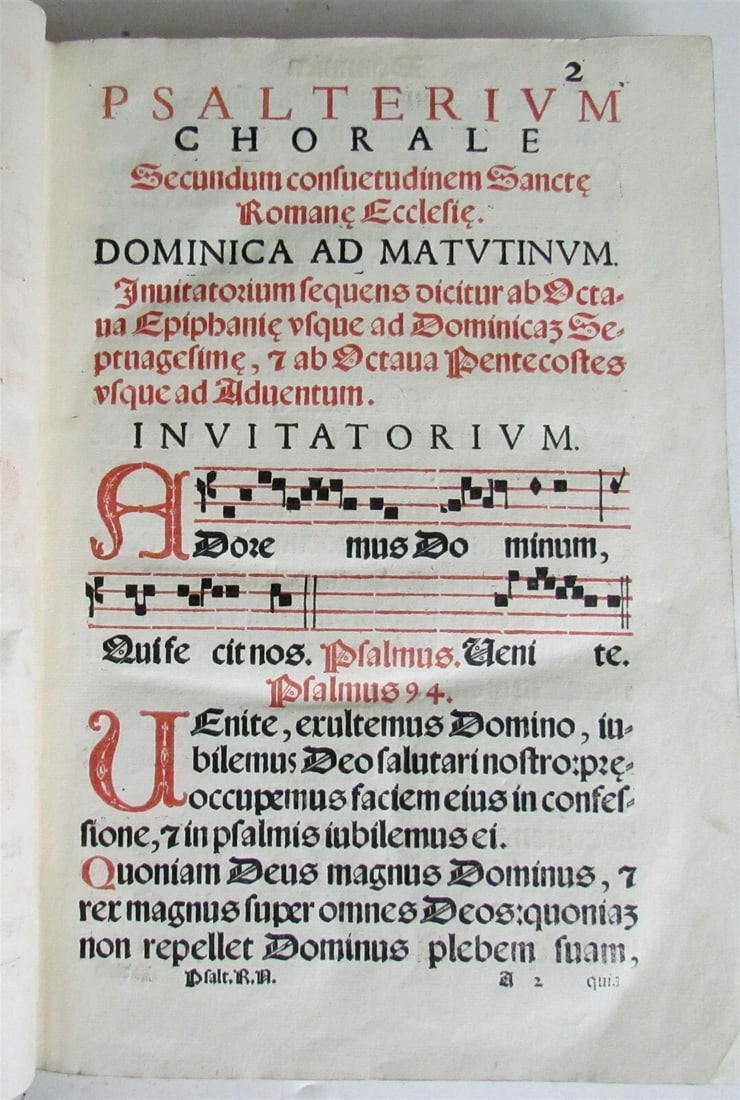 2
PSALTERIVM
CHORALE
Secundum conſuetudinem Sanctę
Romanę Eccleſię.
DOMINICA AD MATVTINVM.
Inuitatorium ſequens dicitur ab Octa-
ua Epiphanię vſque ad Dominicaꝫ Se-
ptuageſimę, ⁊ ab Octaua Pentecoſtes
vſque ad Aduentum.
INVITATORIVM.
ADore mus Do minum,
Qui fe cit nos. Pſalmus. Ueni te.
Pſalmus 94.
UEnite, exultemus Domino, iu-
bilemus Deo ſalutari noſtro: prę-
occupemus faciem eius in confeſ-
ſione, ⁊ in pſalmis iubilemus ei.
Quoniam Deus magnus Dominus, ⁊
rex magnus ſuper omnes Deos: quoniaꝫ
non repellet Dominus plebem ſuam,
Pſalt. R.N. A 2 quia